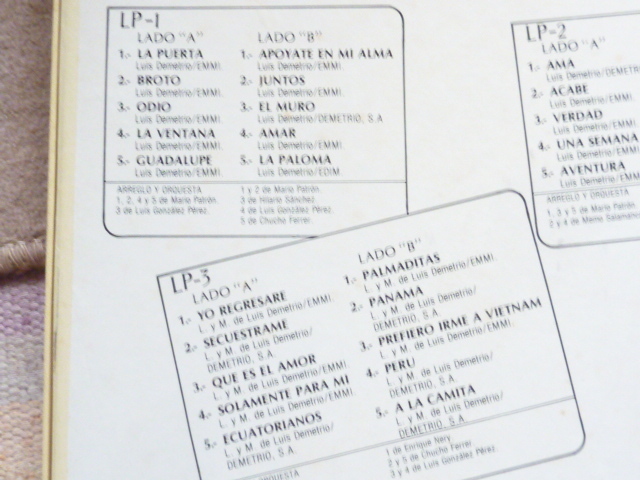 LP-1
LADO "A"
1.- LA PUERTA
Luis Demetrio/EMMI.
2.- BROTO
Luis Demetrio/EMMI.
3.- ODIO
Luis Demetrio/EMMI.
4.- LA VENTANA
Luis Demetrio/EMMI.
5.- GUADALUPE
Luis Demetrio/EMMI.
LADO "B"
1.- APOYATE EN MI ALMA
Luis Demetrio/EMMI.
2.- JUNTOS
Luis Demetrio/EMMI.
3.- EL MURO
Luis Demetrio/DEMETRIO, S.A.
4.- AMAR
Luis Demetrio/EMMI.
5.- LA PALOMA
Luis Demetrio/EDIM
ARREGLO Y ORQUESTA
1, 2, 4 y 5 de Mario Patrón.
3 de Luis González Pérez.
1 y 2 de Mario Patrón.
3 de Hilario Sánchez.
4 de Luis González Pérez.
5 de Chucho Ferrer.
LP-2
LADO "A"
1.- AMA
Luis Demetrio/DEMETR
2.- ACABE
Luis Demetrio/EMM
3.- VERDAD
Luis Demetrio/EMM
4.- UNA SEMANA
Luis Demetrio/EMM
5.- AVENTURA
Luis Demetrio/EMM
ARREGLO Y ORQUESTA
1, 3 y 5 de Mario Patrón.
2 y 4 de Memo Salamán
LP-3
LADO "A"
1.- YO REGRESARE
L. y M. de Luis Demetrio/EMMI.
2.- SECUESTRAME
L. y M. de Luis Demetrio/
DEMETRIO, S.A.
3.- QUE ES EL AMOR
L. y M. de Luis Demetrio/EMMI.
4.- SOLAMENTE PARA MI
L. y M. de Luis Demetrio/EMMI.
5.- ECUATORIANOS
L. y M. de Luis Demetrio/
DEMETRIO, S.A.
LADO "B"
1.- PALMADITAS
L. y M. de Luis Demetrio/EMMI.
2.- PANAMA
L. y M. de Luis Demetrio/
DEMETRIO, S.A.
3.- PREFIERO IRME A VIETNAM
L. y M. de Luis Demetrio/EMMI.
4.- PERU
L. y M. de Luis Demetrio/
DEMETRIO, S.A.
5.- A LA CAMITA
L. y M. de Luis Demetrio/
DEMETRIO, S.A.
QUESTA
1 de Enrique Nery
2 y 5 de Chucho Ferrer
3 y 4 de Luis González Pérez.